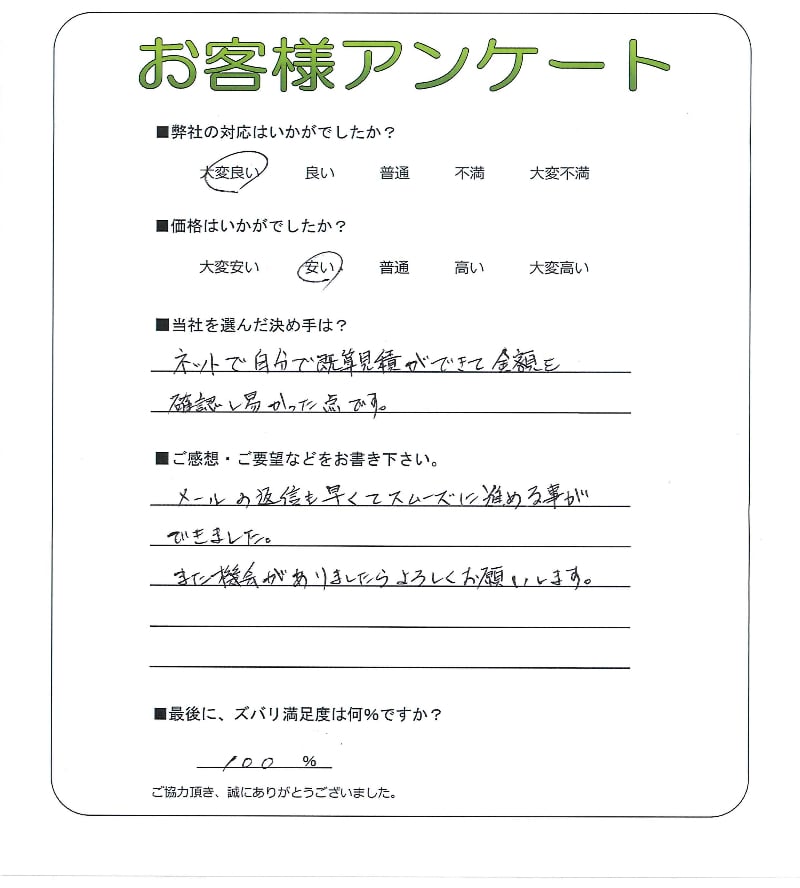 お客様アンケート
■弊社の対応はいかがでしたか？
大変良い 良い 普通 不満 大変不満
■価格はいかがでしたか？
大変安い 安い 普通 高い 大変高い
■当社を選んだ決め手は？
ネットで自分で既算見積ができて金額を
確認し易かった点です。
■ご感想・ご要望などをお書き下さい。
メールの返信も早くてスムーズに進める事が
できました。
また機会がありましたらよろしくお願いします。
■最後に、ズバリ満足度は何％ですか？
100 ％
ご協力頂き、誠にありがとうございました。